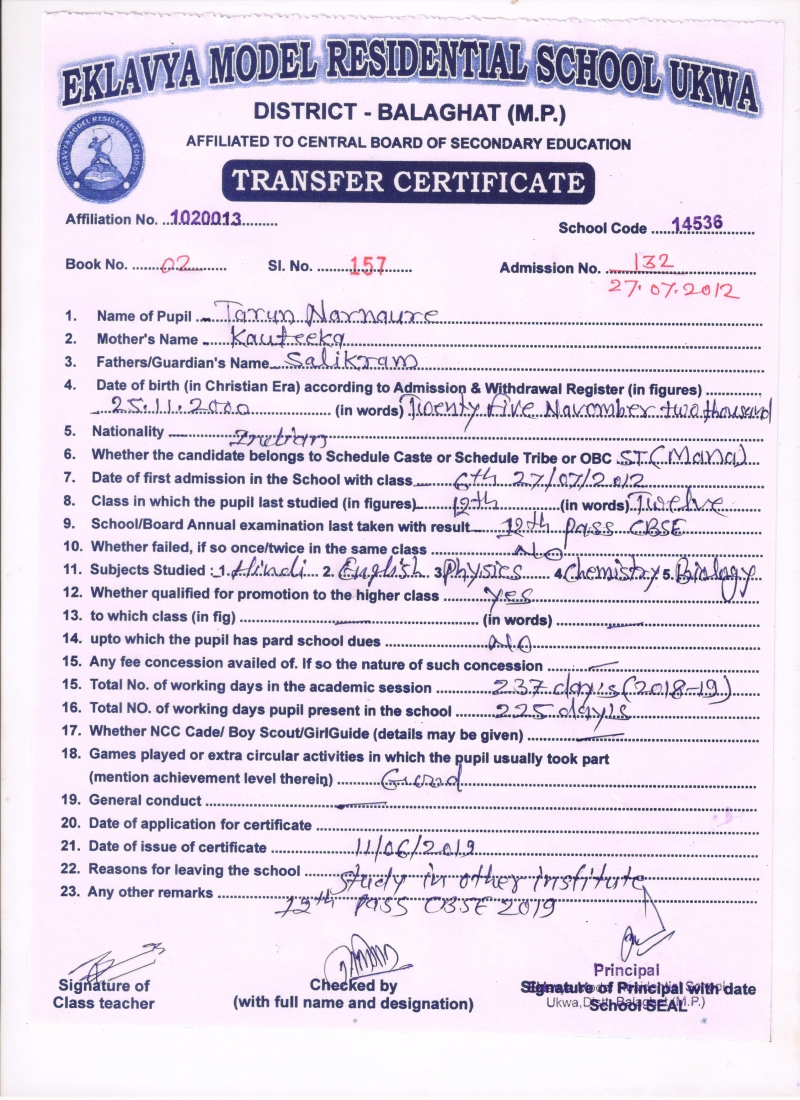 EKLAVYA MODEL RESIDENTIAL SCHOOL UKWA
DISTRICT - BALAGHAT (M.P.)
AFFILIATED TO CENTRAL BOARD OF SECONDARY EDUCATION
EKLAVYA MODEL RESIDENTIAL SCHOOL
TRANSFER CERTIFICATE
Affiliation No. 1020013
School Code 14536
Book No. 02 Sl. No. 157 Admission No. 132
27.07.2012
1. Name of Pupil Tarun Narnaure
2. Mother's Name Kauteeka
3. Fathers/Guardian's Name Salikram
4. Date of birth (in Christian Era) according to Admission & Withdrawal Register (in figures)
25.11.2000 (in words) Twenty five November two thousand
5. Nationality Indian
6. Whether the candidate belongs to Schedule Caste or Schedule Tribe or OBC ST (Mana)
7. Date of first admission in the School with class 6th 27/07/2012
8. Class in which the pupil last studied (in figures) 12th (in words) Twelve
9. School/Board Annual examination last taken with result 12th pass CBSE
10. Whether failed, if so once/twice in the same class NO
11. Subjects Studied : 1. Hindi 2. English 3 Physics 4 Chemistry 5. Biology
12. Whether qualified for promotion to the higher class yes
13. to which class (in fig) — (in words) —
14. upto which the pupil has pard school dues NO
15. Any fee concession availed of. If so the nature of such concession —
15. Total No. of working days in the academic session 237 dayis (2018-19)
16. Total NO. of working days pupil present in the school 225 dayis
17. Whether NCC Cade/ Boy Scout/GirlGuide (details may be given) —
18. Games played or extra circular activities in which the pupil usually took part
(mention achievement level therein)
19. General conduct —
20. Date of application for certificate
21. Date of issue of certificate 11/06/2019
22. Reasons for leaving the school Study in other institute
23. Any other remarks 12th pass CBSE 2019
Signature of
Class teacher
Checked by
(with full name and designation)
Principal
Signature of Principal with date
Ukwa, Distt. Balaghat (M.P.)
School SEAL